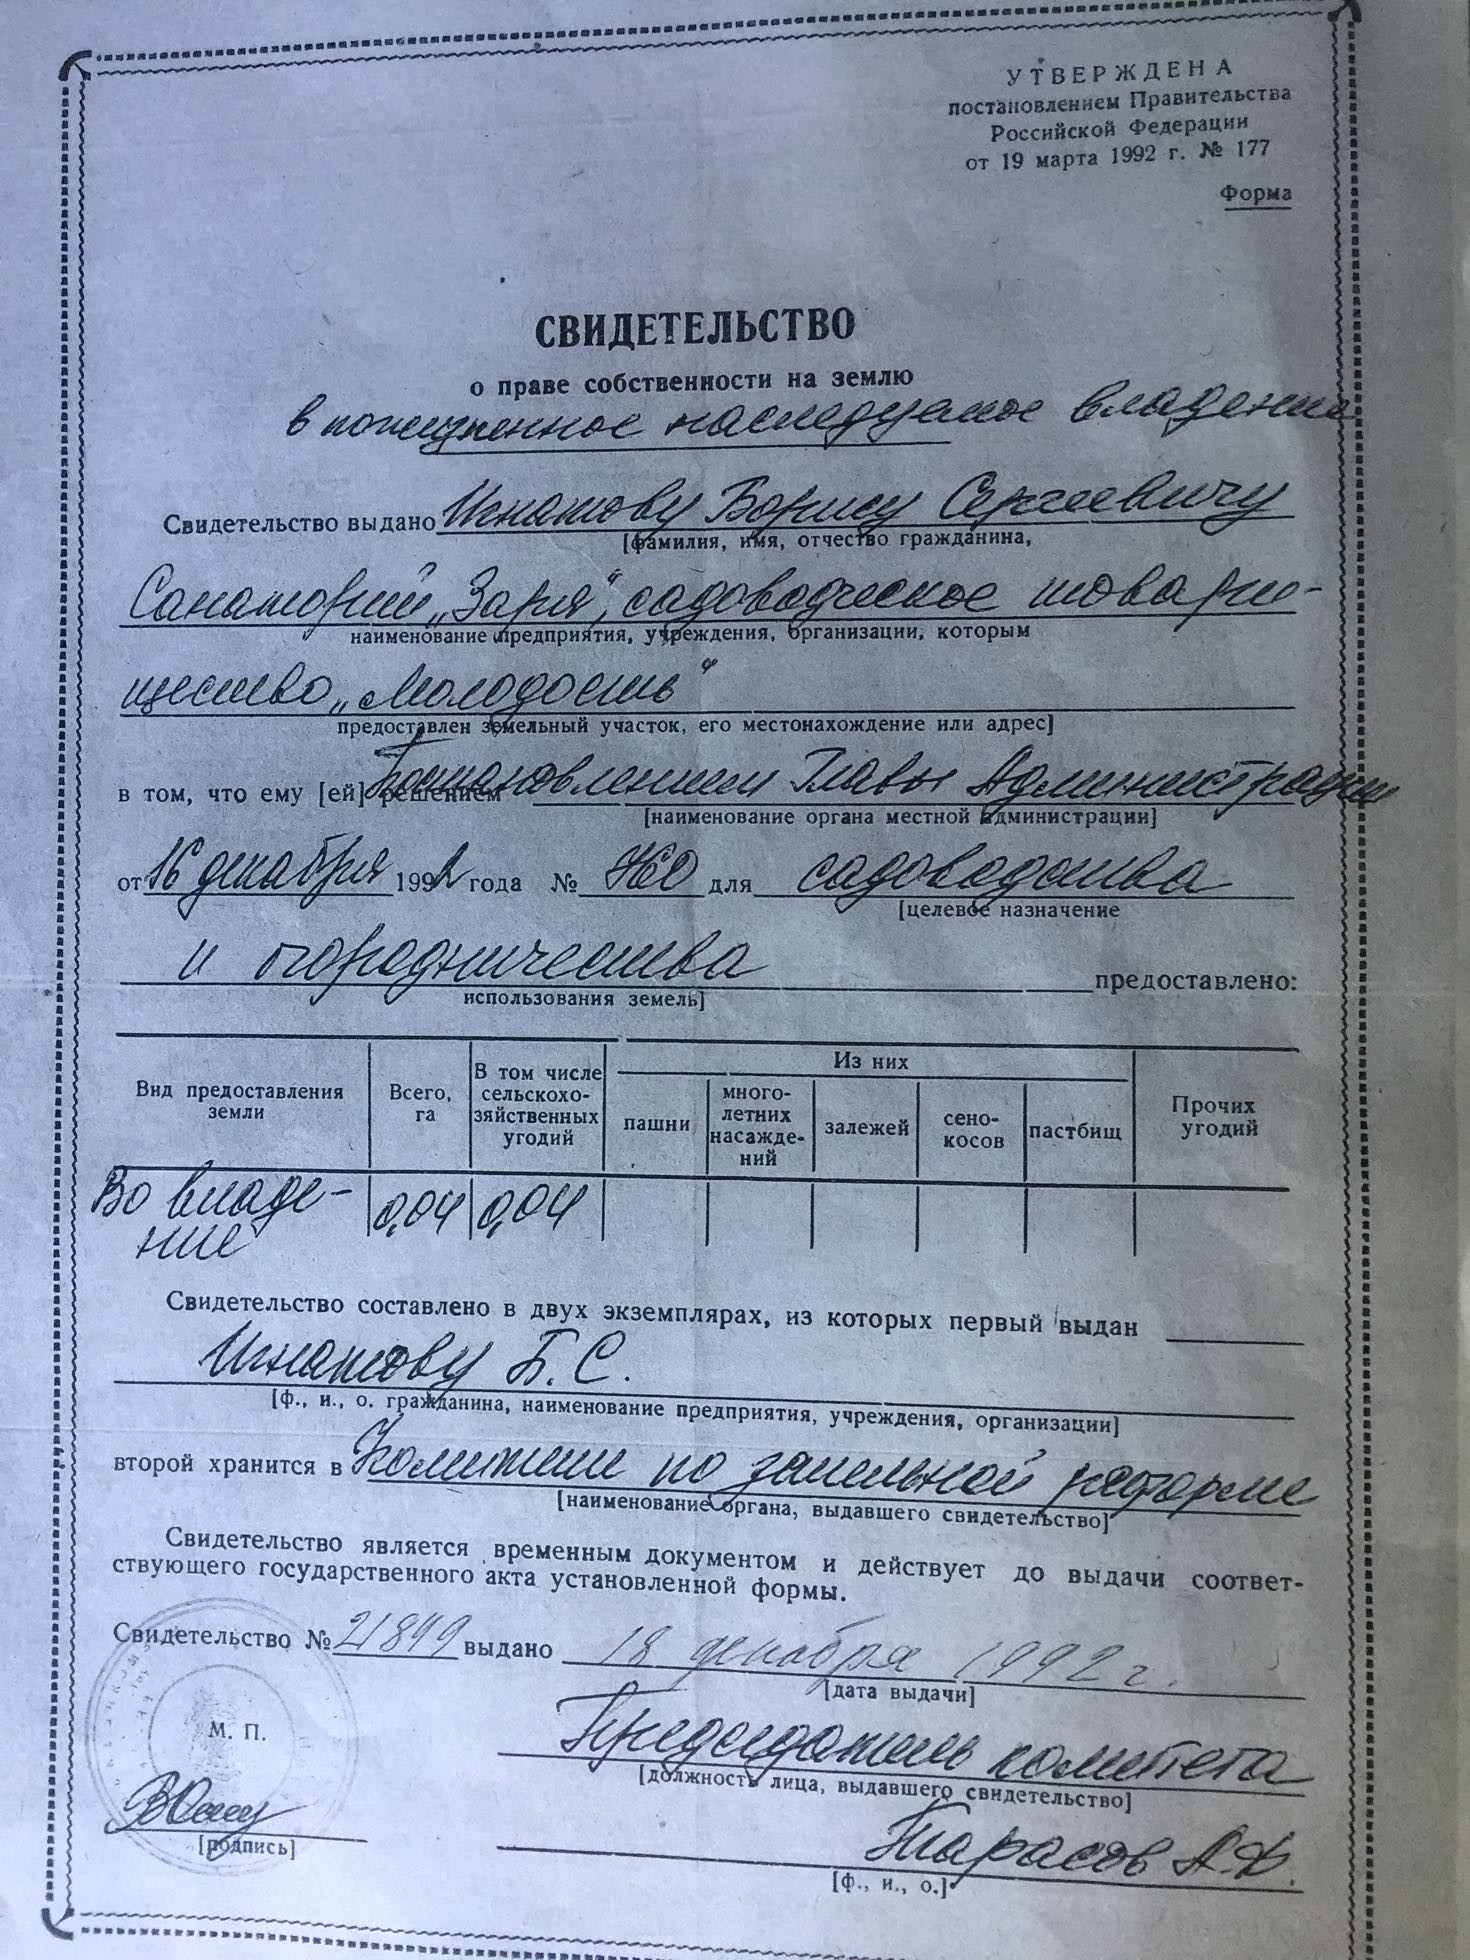 УТВЕРЖДЕНА
постановлением Правительства
Российской Федерации
от 19 марта 1992 г. № 177
Форма
СВИДЕТЕЛЬСТВО
о праве собственности на землю
в пожизненное наследуемое владение
Свидетельство выдано Игнатову Борису Сергеевичу
[фамилия, имя, отчество гражданина,
Санаторий „Заря", садоводческое товари-
наименование предприятия, учреждения, организации, которым
щество „Молодость"
предоставлен земельный участок, его местонахождение или адрес]
в том, что ему [ей] решением Постановлением Главы Администрации
[наименование органа местной администрации]
от 16 декабря 1992 года № 760 для садоводства
[целевое назначение
и огородничества предоставлено:
использования земель]
Вид предоставления земли
Всего, га
В том числе сельскохо-зяйственных угодий
Из них
пашни
много-летних насажде-ний
залежей
сено-косов
пастбищ
Прочих угодий
Во владе- 0,04 0,04
ние
Свидетельство составлено в двух экземплярах, из которых первый выдан
Игнатову Б. С.
[ф., и., о. гражданина, наименование предприятия, учреждения, организации]
второй хранится в Комитете по земельной реформе
[наименование органа, выдавшего свидетельство]
Свидетельство является временным документом и действует до выдачи соответ-
ствующего государственного акта установленной формы.
Свидетельство № 21849 выдано 18 декабря 1992 г.
[дата выдачи]
М. П.
Председатель комитета
[должность лица, выдавшего свидетельство]
[подпись]
Тарасов А.Ф.
[ф., и., о.]